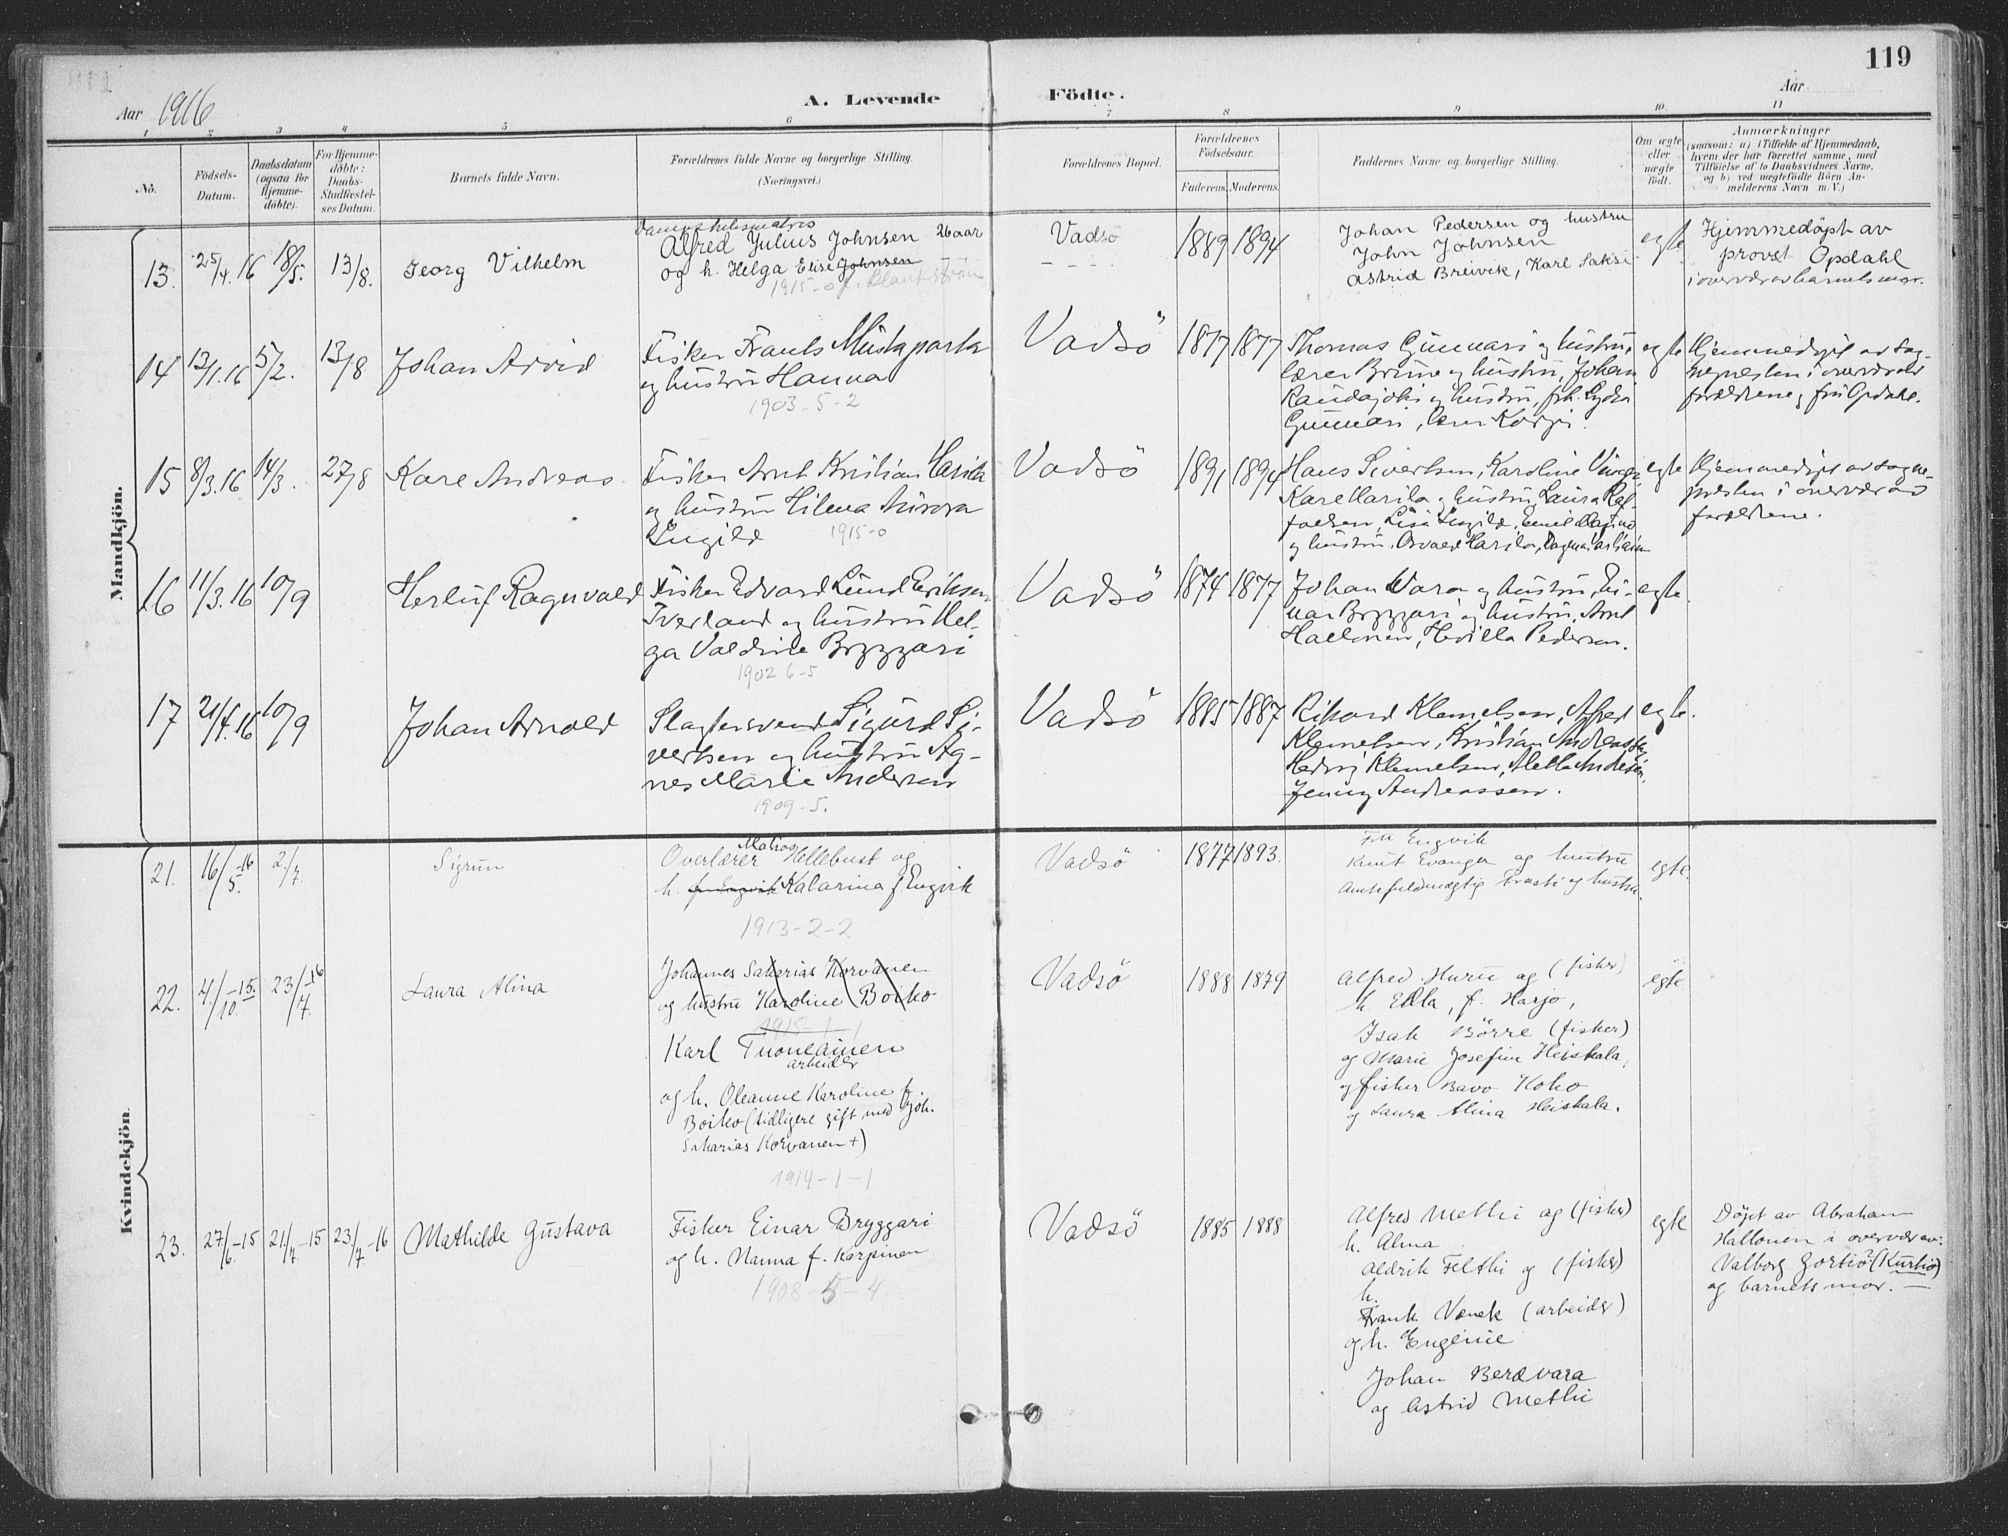 119
Aar 1916
A. Levende Födte.
Aar
1 2 3 4 5 6 7 8 9 10. 11
No.
Födsels-
Datum.
Daabsdatum
(ogsaa for
Hjemme-
döbte).
For Hjemme-
döbte:
Daabs-
Stadfæstel-
ses Datum.
Barnets fulde Navn.
Forældrenes fulde Navne og borgerlige Stilling.
(Næringsvei.)
Forældrenes Bopæl.
Forældrenes
Födselsaar.
Faderens. Moderens.
Faddernes Navne og borgerlige Stilling.
Om ægte
eller
uægte
födt.
Anmærkninger
(saasom: a) i Tilfælde af Hjemmedaab,
hvem der har forrettet samme, med
Tilföielse af to Daabsvidners Navne,
og b) ved uægtefödte Börn An-
melderens Navn m. V.)
Mandkjön.
13. 25/4.16 18/5. 13/8. Georg Vilhelm
Alfred Julius Johnsen 26 aar
og h. Helga Elise Johnsen
1915-0
Vadsö
1889 1894
Johan Pedersen og hustru
John Johnsen
Astrid Breivik, Karl Saksi
egte.
Hjemmedöpt av
provst Opdahl
i overvær av barnets mor.
14 13/1.16 5/2. 13/8 Johan Arvid
Fisker Frants Mustaparta
og hustru Hanna
1903-5-2
Vadsö
1877 1877
Thomas Gunnari og hustru,
lærer Brune og hustru, Johan
Raudajoki og hustru, frk. Lydia
Gunnari,
egte
Hjemmedöpt av sog-
nepresten i overvær av
forældrene og fru Opdahl.
15 8/3.16 14/3. 27/8 Kare Andreas
Fisker Arnt Kristian Harila
og hustru Hilma Aurora
Ingild 1915-0
Vadsö
1891 1894
Hans Sivertsen, Karoline
Kare Harila og hustru, Laura Raf-
faelsen, Lisa Ingild, Emil
og hustru, Osvald Harila, Dagmar
egte
Hjemmedöpt av sogne-
presten i overvær av
forældrene.
16 11/3.16 10/9 Herluf Ragnvald
Fisker Edvard Lund Eriksen
Tverland og hustru Hel-
ga Valdine Bryggari
1902 6-5
Vadsö
1874 1877
Johan Vara og hustru, Ei-
nar Bryggari og hustru, Arnt
Hallonen, Hevilla Pedersen.
egte.
17 21/4.16 10/9 Johan Arnold
Slagtersvend Sigurd Si-
vertsen og hustru Ag-
nes Marie Andersen
1909-5.
Vadsö
1885 1887
Rikard Klemetsen, Alfred
Klemetsen, Kristian Andreassen,
Hedvig Klemetsen, Metha Andersen,
Jenny Andreassen.
egte.
Kvindekjön.
21. 16/5.-16 2/7. Sigrun
Overlærer Matias Hellebust og
h. f. Engvik Katarina f. Engvik
1913-2-2
Vadsö
1877 1893.
Engvik
Knut Evanger og hustru
Amtsfuldmægtig Frosti og hustru.
egte.
22. 4/10.-15. 23/7.-16 Laura Alina
Johannes Sakarias Korvanen
og hustru Karoline Boiko
1915-1-1
Karl Tuoneainen
arbeider
og h. Oleanne Karoline f.
Boiko (tidligere gift med Joh.
Sakarias Korvanen +)
1914-1-1
Vadsö
1888 1879
Alfred Huru og (fisker)
h. Ella, f. Harjo,
Isak Börre (fisker)
og Marie Josefine Heiskala,
og fisker Bavo Koko
og Laura Alina Heiskala.
egte
23. 27/6.-15 21/7.-15 23/7.-16 Mathilde Gustava
Fisker Einar Bryggari
og h. Nanna f. Karpinen
1908-5-4
Vadsö
1885 1888
Alfred Methi og (fisker)
h. Alma
Aldrik Felthi og (fisker)
h.
Frank Vænek (arbeider)
og h. Engenie
Johan Berdvara
og Astrid Methi
egte
Döpt av Abraham
Hallonen i overvær av:
Valborg Gortiö? (Kurtiö)
og barnets mor. —